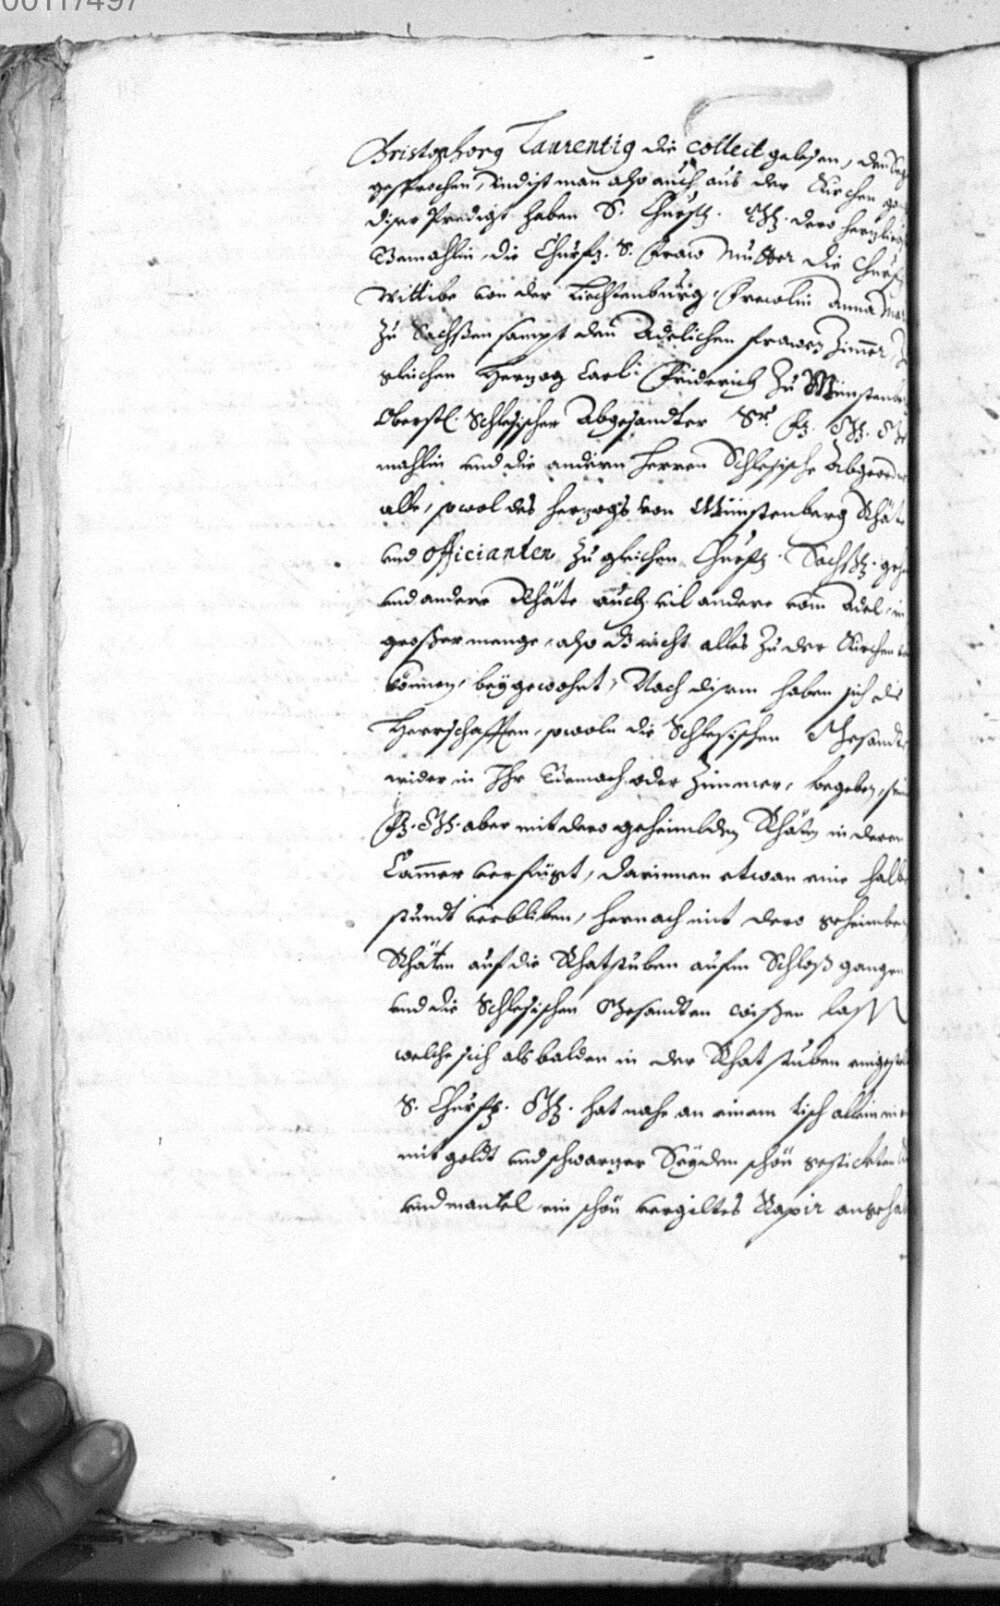 00117497
Christophorg Laurentig die Collect gelesen, den Seg
gesprochen, Und ist man also auch aus der Kirchen
diser Predigt haben S. Churfl. Gh. dero herzlieb
Gemahlin, die Churf. S. Fraw Mutter die Churf
Wittibe von der Liechtenburg, Frewlin Anna Mar
zu Sachßen sampt den Adelichen frawen Zimmer
gleichen Herzog Carl Friderich zu Münstenber
Oberstl. Schlesischer Abgesandter Sr. F. Gh. Ge
mahlin und die andern herren Schlesische Abgeordn
alle, sowol des herzogs von Münstenberg Rhät
und Officianten zu gleichen Churfl. Sachßl. geh
und andere Rhäte auch vil andere vom Adel, in
großer menge, also dz nicht alles zu der Kirchen
können, beygewohnt, Nach disem haben sich die
Herrschafften, sowoln die Schlesischen Gesandt
wider in Ihr Gemach oder Zimmer, begeben, sein
F. Gh. aber mit dero geheimbden Rhäten in deren
Cammer verfügt, darinnen etwan eine halbe
stundt verbliben, hernach mit dero geheimbe
Rhäten auf die Rhatstuben aufm Schloß gangen
und die Schlesischen Gesandten wißen lass
welche sich als balden in der Rhatstuben eingestel
S. Churfl. Gh. hat nahe an einem tisch allein
mit goldt und schwarzer Seyden schön gestickten
und mantel ein schön vergiltes Rapir angeha